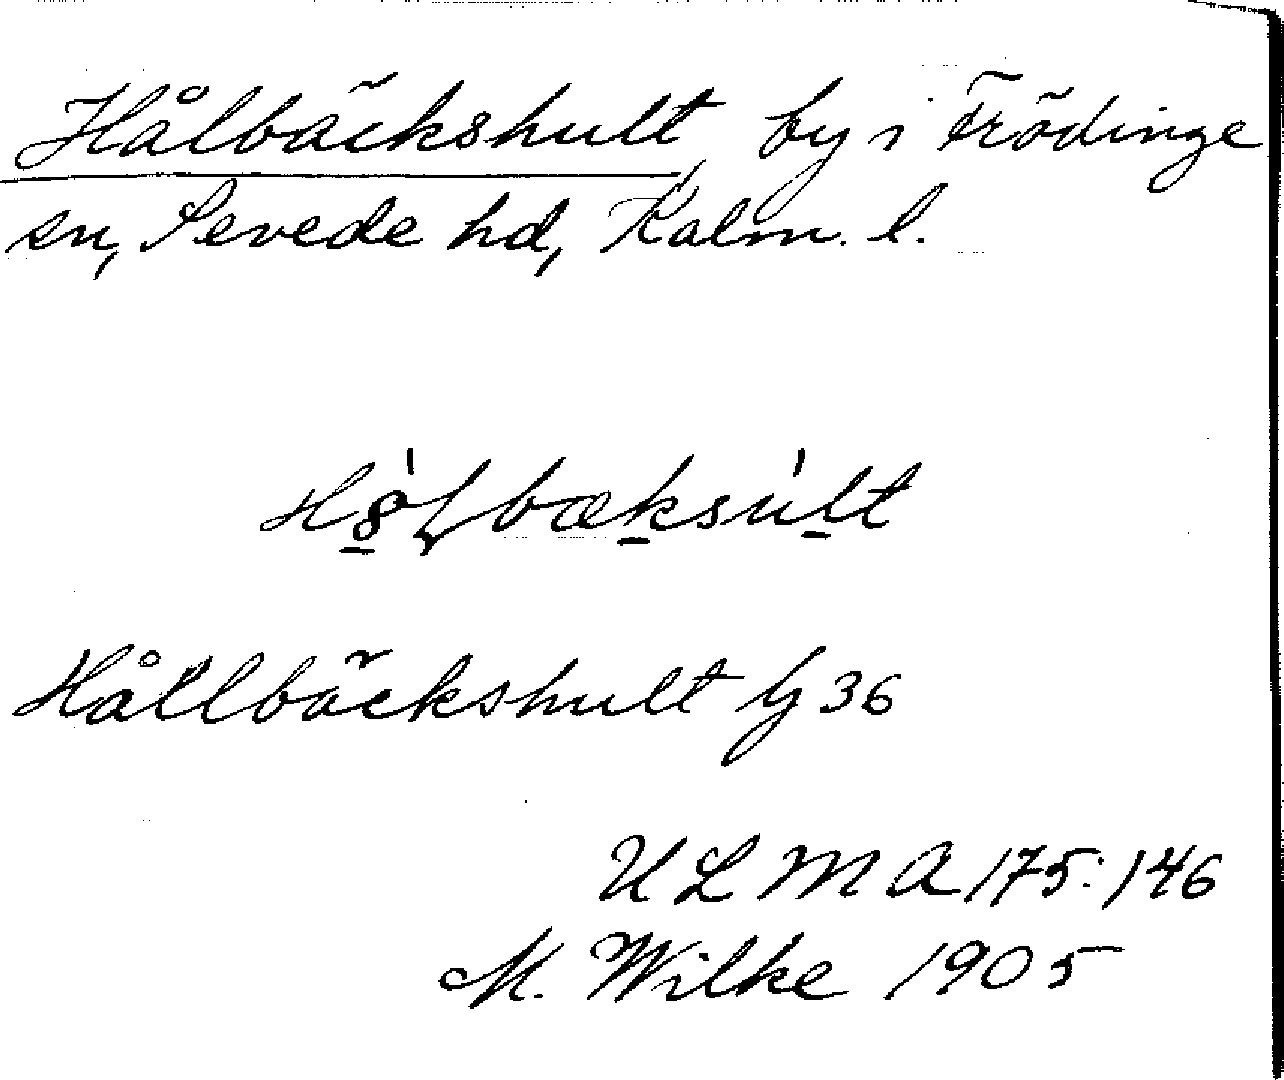 Hålbäckshult, by i Frödinge
sn, Sevede hd, Kalm. l.
Hållbäckshult Gj 36
U L M A 175:146
M. Wilke 1905